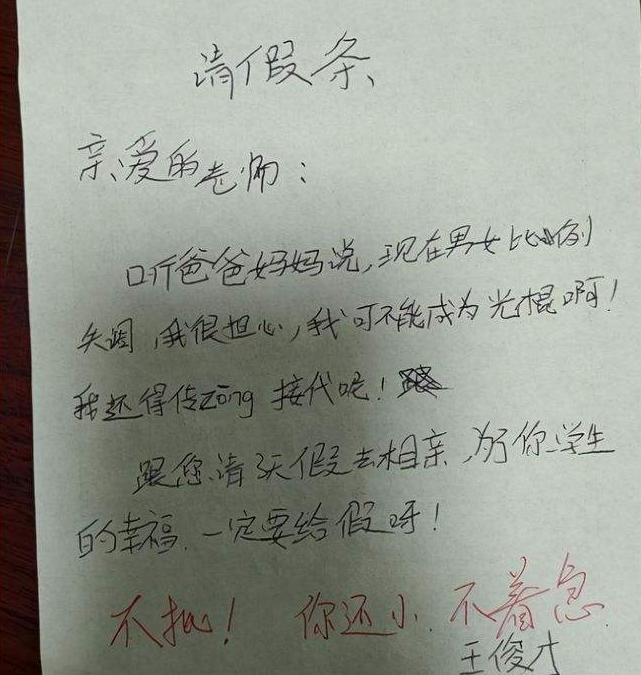 请假条
亲爱的老师：
听爸爸妈妈说,现在男女比例
失调,我很担心,我可不能成为光棍啊!
我还得传zōng 接代呢!
跟您请3天假去相亲,为了你学生
的幸福.一定要给假呀!
不批! 你还小.不着急.
王俊才